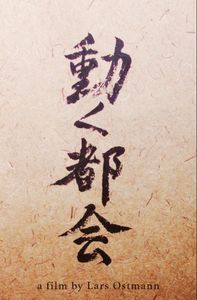 動く都会
a film by Lars Ostmann